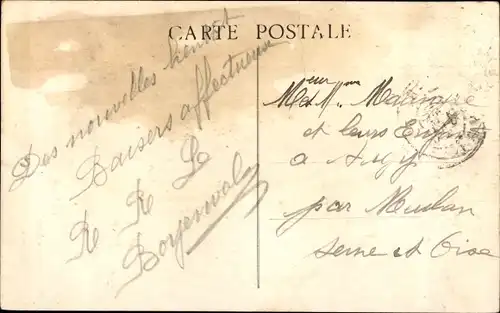 CARTE POSTALE
Des nouvelles bientôt
Baisers affectueux
R R L
Monsieur et Mme
et leurs Enfants
a
par Meulan
seine et Oise